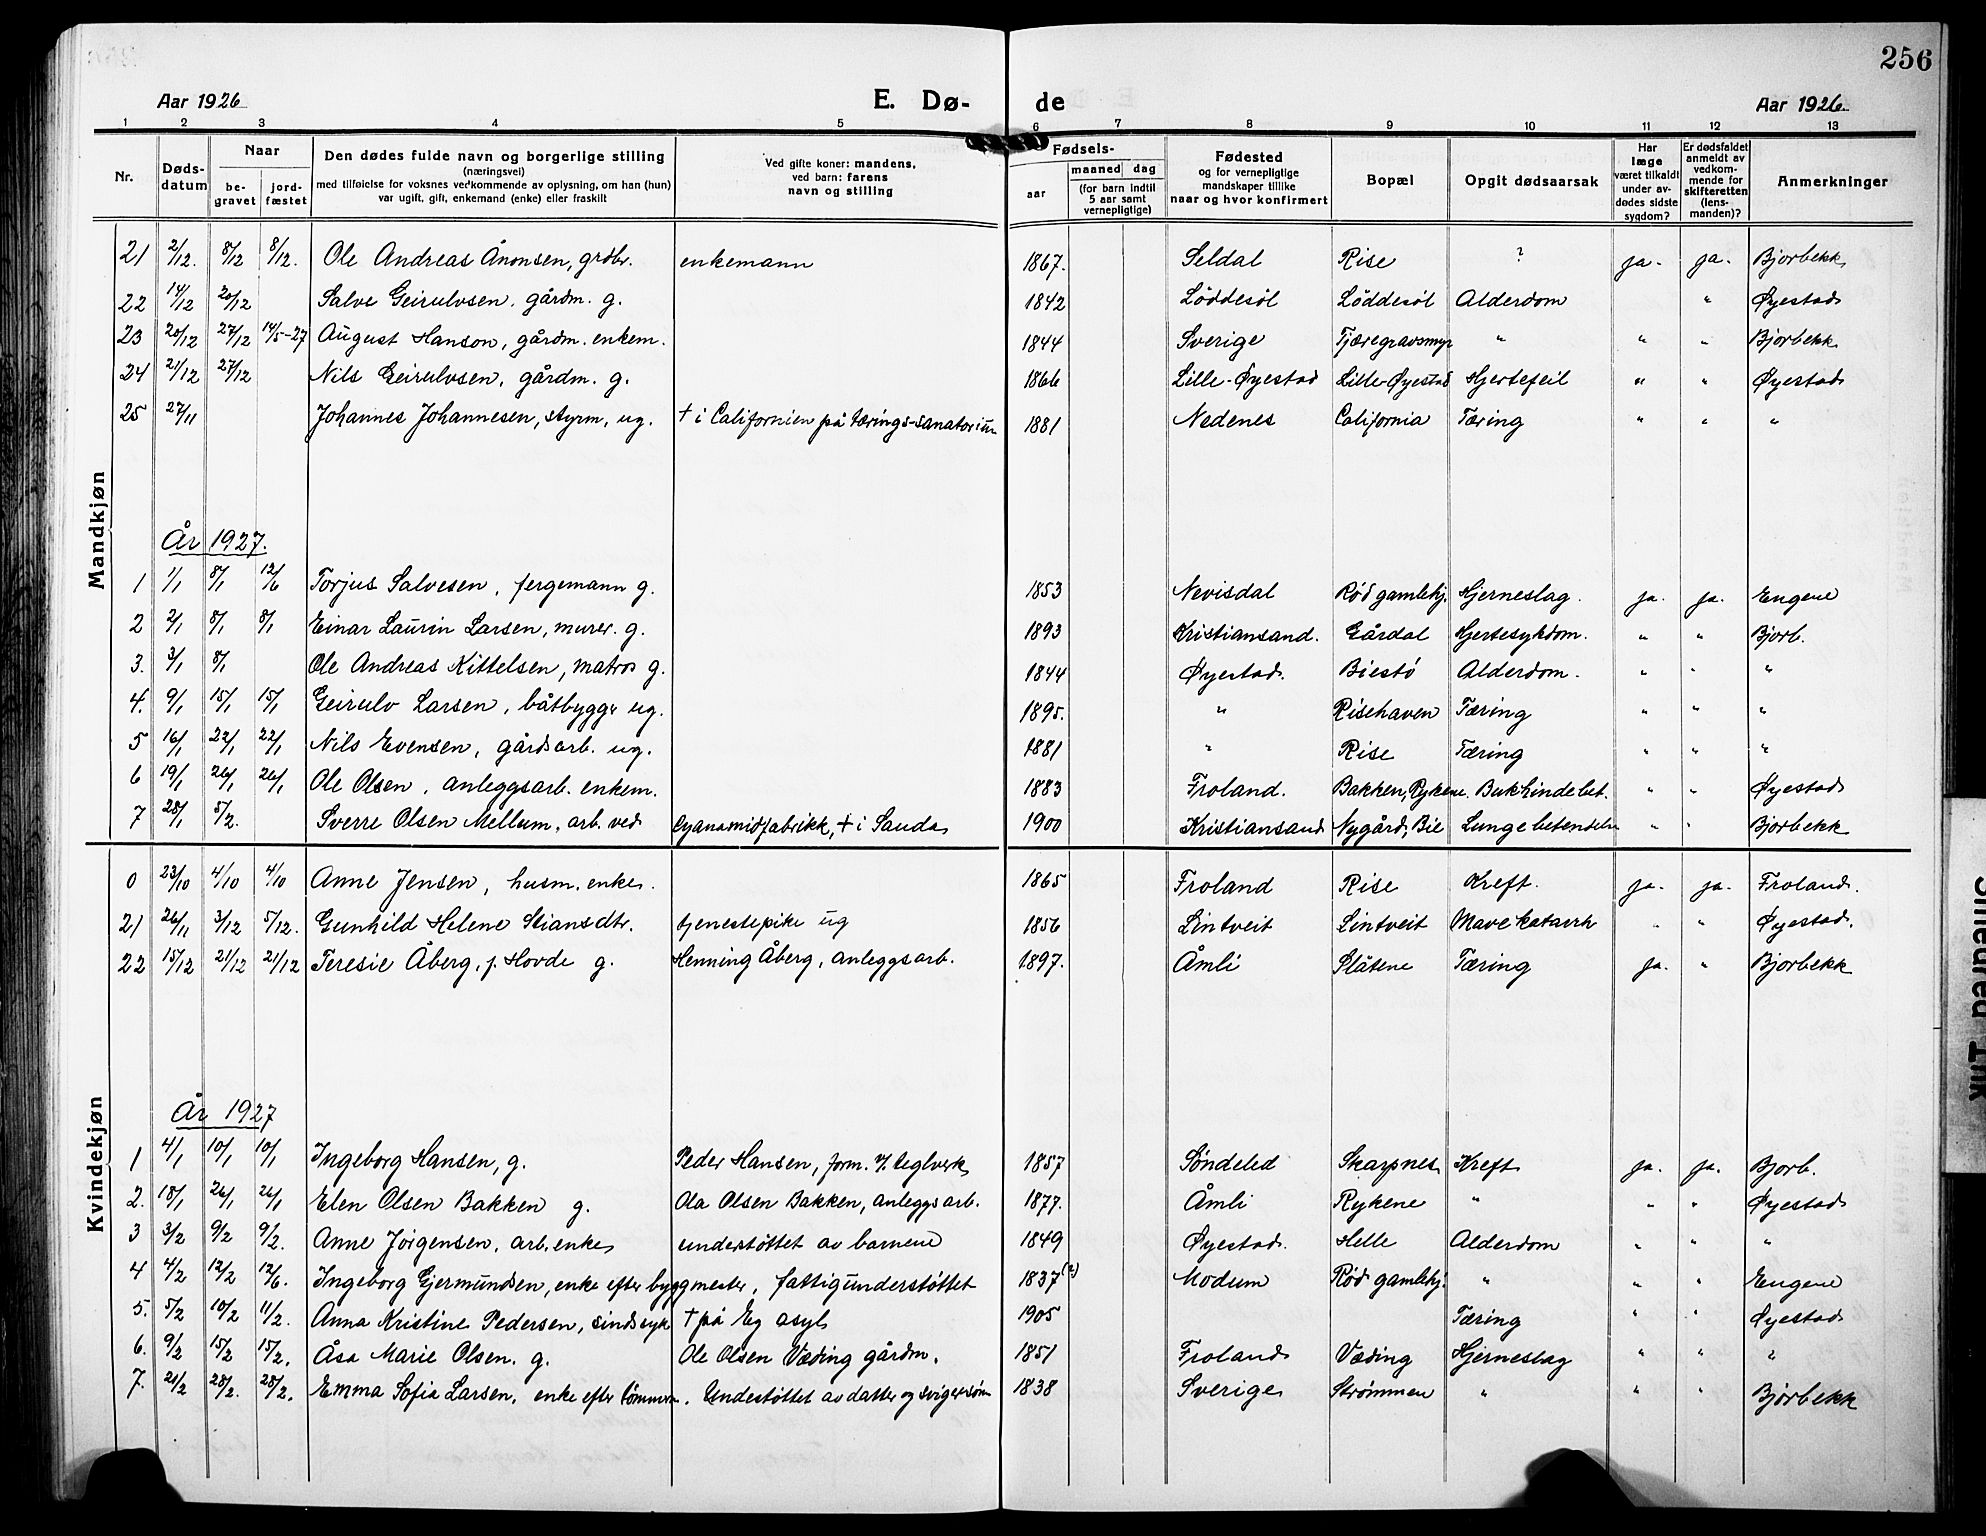 256
Aar 1926 E. Dø- de Aar 1926.
1 2 3 4 5 6 7 8 9 10 11 12 13
Nr. Døds-datum Naar be-gravet jord-fæstet Den dødes fulde navn og borgerlige stilling (næringsvei) med tilføielse for voksnes vedkommende av oplysning, om han (hun) var ugift, gift, enkemand (enke) eller fraskilt Ved gifte koner: mandens, ved barn: farens navn og stilling Fødsels- aar maaned dag (for barn indtil 5 aar samt vernepligtige) Fødested og for vernepligtige mandskaper tillike naar og hvor konfirmert Bopæl Opgit dødsaarsak Har læge været tilkaldt under av-dødes sidste sygdom? Er dødsfaldet anmeldt av vedkom-mende for skifteretten (lens-manden)? Anmerkninger
Mandkjøn
21 2/12. 8/12 8/12. Ole Andreas Ånonsen, grdbr. enkemann 1867. Seldal Rise ? ja. ja. Bjorbekk
22 14/12 20/12 Salve Geirulvsen. gårdm. g. 1842 Löddesöl Löddesöl Alderdom " Øyestad
23 20/12 27/12 14/5-27 August Hanson, gårdm. enkem. 1844 Sverige Tjæregravsmyr " " " Bjorbekk
24 21/12 27/12 Nils Geirulvsen, gårdm. g. 1866 Lille-Øyestad Lille-Øyestad Hjertefeil " " Øyestad
25 27/11 Johannes Johannesen, styrm, ug. † i Californien på tærings-sanatorium 1881 Nedenes California Tæring " " "
År 1927.
1 1/1 8/1 12/6 Torjus Salvesen, fergemann g. 1853 Nevisdal Rød gamlehj. Hjerneslag. ja. ja. Engene
2 2/1 8/1 8/1 Einar Laurin Larsen, murer. g. 1893 Kristiansand. Gårdal Hjertesykdom. " " Bjorb.
3. 3/1 8/1 Ole Andreas Kittelsen, matros g. 1844 Øyestad. Biestö Alderdom. " " "
4. 9/1 15/1 15/1 Geirulv Larsen, båtbygger ug. 1895. " Risehaven Tæring " " "
5 16/1 22/1 22/1 Nils Evensen, gårdsarb. ug. 1881 " Rise Tæring " " "
6 19/1 26/1 26/1 Ole Olsen, anleggsarb. enkem. 1883 Froland. Bakken, Rykene. Bukhindebet. " " Øyestad
7 28/1 5/2. Sverre Olsen Mellum, arb. ved Cyanamidfabrikk, † i Sauda 1900 Kristiansand Nygård, Bie Lungebetendelse " " Bjorbekk
Kvindekjøn
0 23/10 4/10 4/10 Anne Jensen, husm. enke. 1865 Froland Rise Kreft. ja. ja. Froland.
21 26/11 3/12 5/12. Gunhild Helene Stiansdtr. tjenestepike ug 1856 Lintveit Lintveit Mavekatarrh " " Øyestad.
22 15/12 21/12 21/12 Teresie Åberg, f. Hovde g. Henning Åberg, anleggsarb. 1897. Åmli Slåtene Tæring ja. " Bjorbekk
År 1927
1 4/1 10/1 10/1 Ingeborg Hansen, g. Peder Hansen, form. v/ teglverk 1857 Söndeled Skarpnes Kreft ja. ja. Bjorb.
2. 18/1 26/1 26/1 Elen Olsen Bakken g. Ola Olsen Bakken, anleggsarb. 1877. Åmli Rykene " " " Øyestad
3 3/2 9/2 9/2. Anne Jörgensen, arb. enke understöttet av barnene 1849 Øyestad. Helle Alderdom " " "
4 4/2 12/2 12/6. Ingeborg Gjermundsen, enke efter byggmester, fattigunderstöttet 1837 (?) Modum Rød gamlehj. " " " Engene
5. 5/2 10/2 11/2. Anna Kristine Pedersen, sindssyk † på Eg asyl 1905 Tæring " " Øyestad
6. 9/2 15/2 15/2. Åsa Marie Olsen. g. Ole Olsen Væding gårdm. 1851 Froland Væding Hjerneslag " " "
7. 21/2 28/2. 28/2. Emma Sofia Larsen, enke efter tömmerm. Understöttet av datter og svigersön 1838 Sverige Strømmen " " " Bjorbekk
Smeared Ink